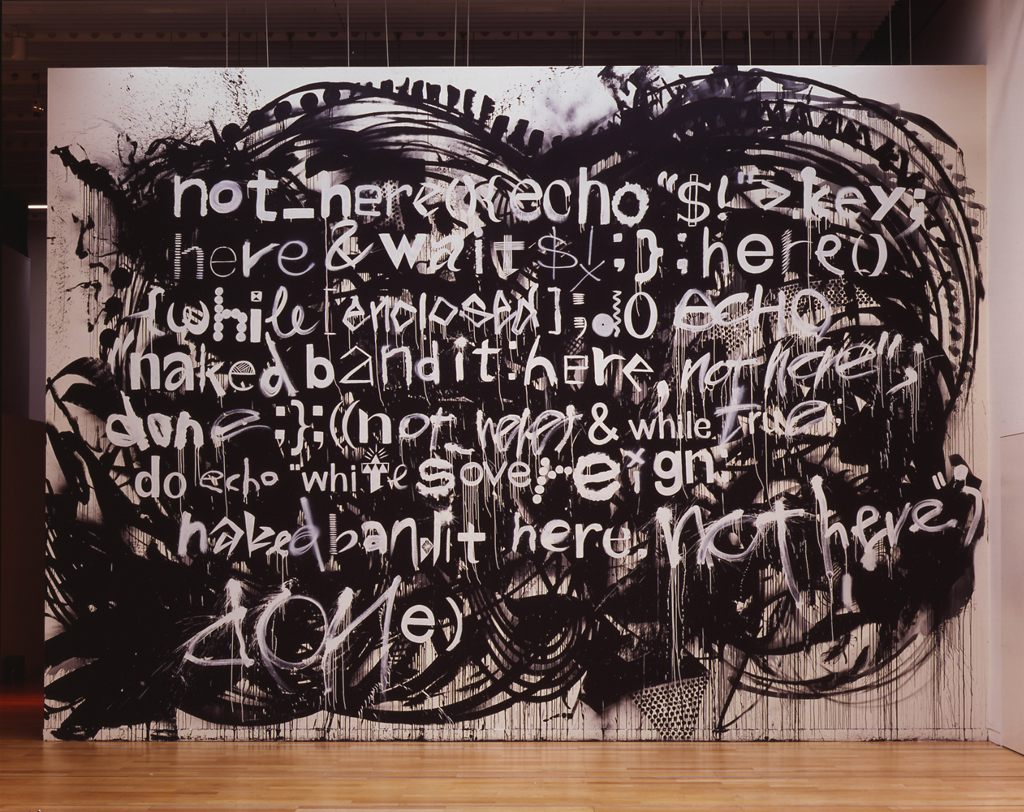 not_here(){echo "$!">.key;
here & wait $! ;} ; here()
{while [enclosed];do echo
"naked bandit:here, not here";
done ;};((not_here) & while true;
do echo "white sovereign:
naked bandit here, not here";
done)